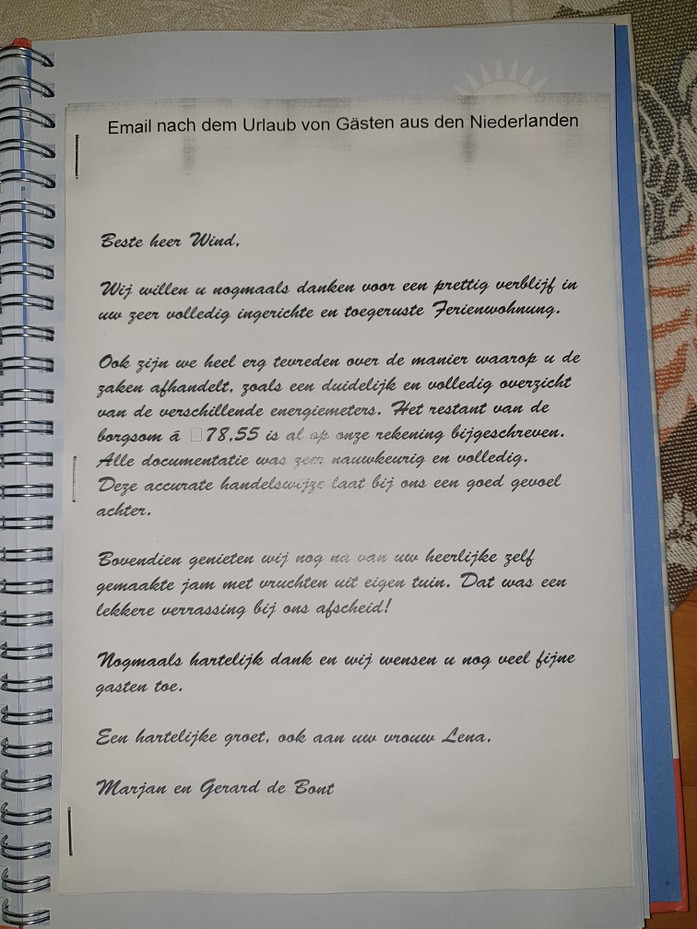 Email nach dem Urlaub von Gästen aus den Niederlanden
Beste heer Wind,
Wij willen u nogmaals danken voor een prettig verblijf in
uw zeer volledig ingerichte en toegeruste Ferienwohnung.
Ook zijn we heel erg tevreden over de manier waarop u de
zaken afhandelt, zoals een duidelijk en volledig overzicht
van de verschillende energiemeters. Het restant van de
borgsom á □78,55 is al op onze rekening bijgeschreven.
Alle documentatie was zeer nauwkeurig en volledig.
Deze accurate handelswijze laat bij ons een goed gevoel
achter.
Bovendien genieten wij nog na van uw heerlijke zelf
gemaakte jam met vruchten uit eigen tuin. Dat was een
lekkere verrassing bij ons afscheid!
Nogmaals hartelijk dank en wij wensen u nog veel fijne
gasten toe.
Een hartelijke groet, ook aan uw vrouw Lena,
Marjan en Gerard de Bont